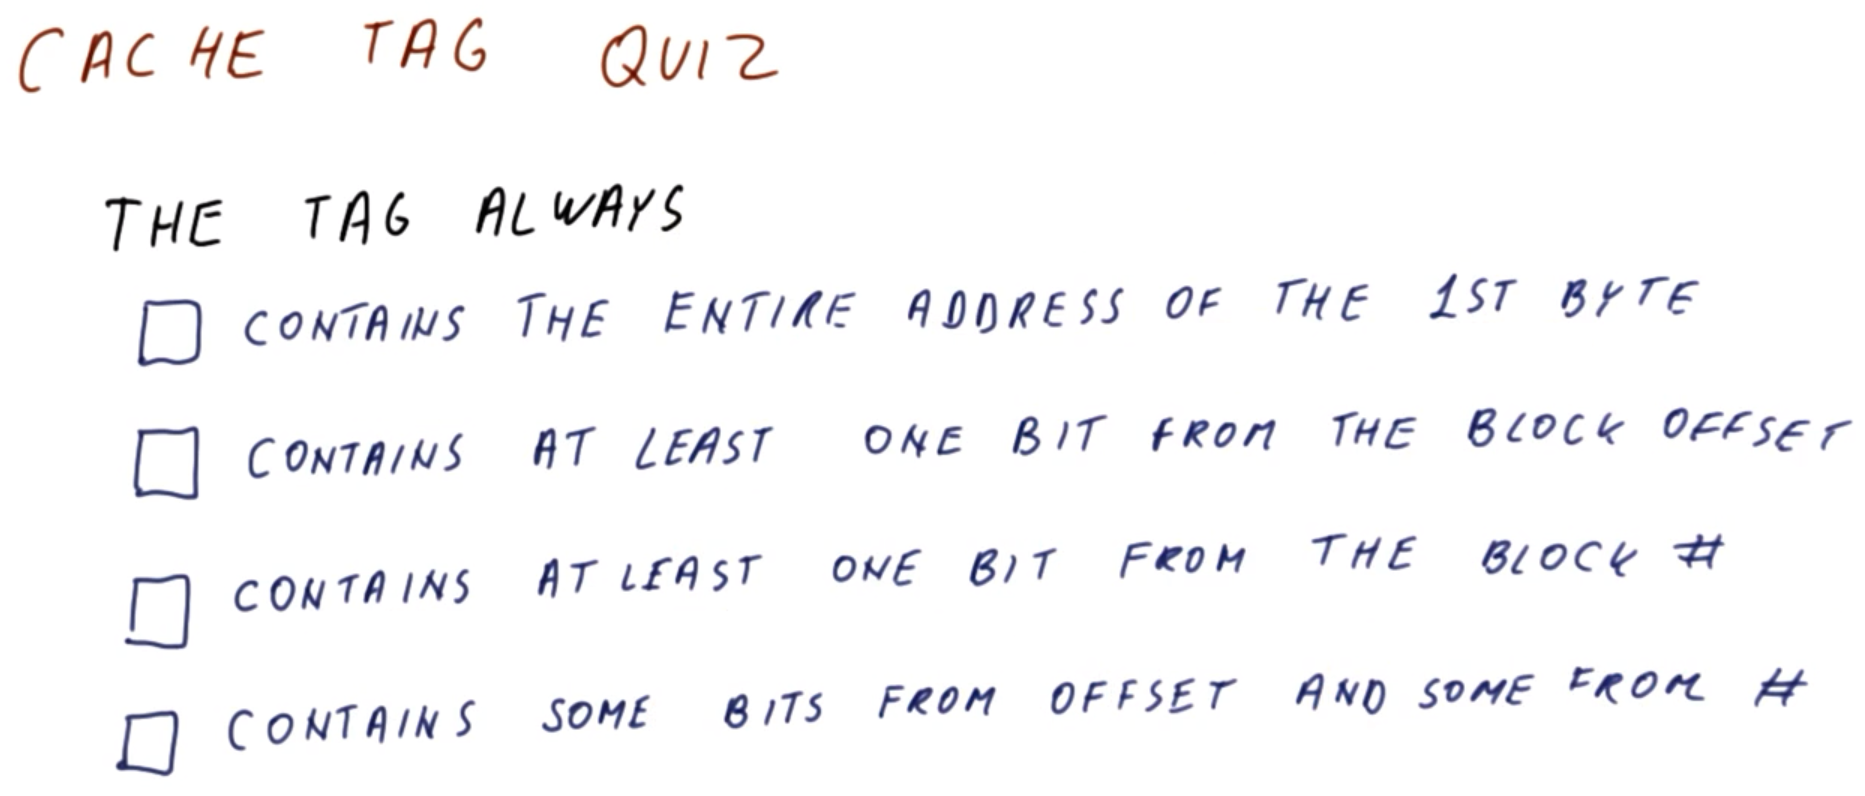 CACHE TAG QUIZ
THE TAG ALWAYS
CONTAINS THE ENTIRE ADDRESS OF THE 1ST BYTE
CONTAINS AT LEAST ONE BIT FROM THE BLOCK OFFSET
CONTAINS AT LEAST ONE BIT FROM THE BLOCK #
CONTAINS SOME BITS FROM OFFSET AND SOME FROM #